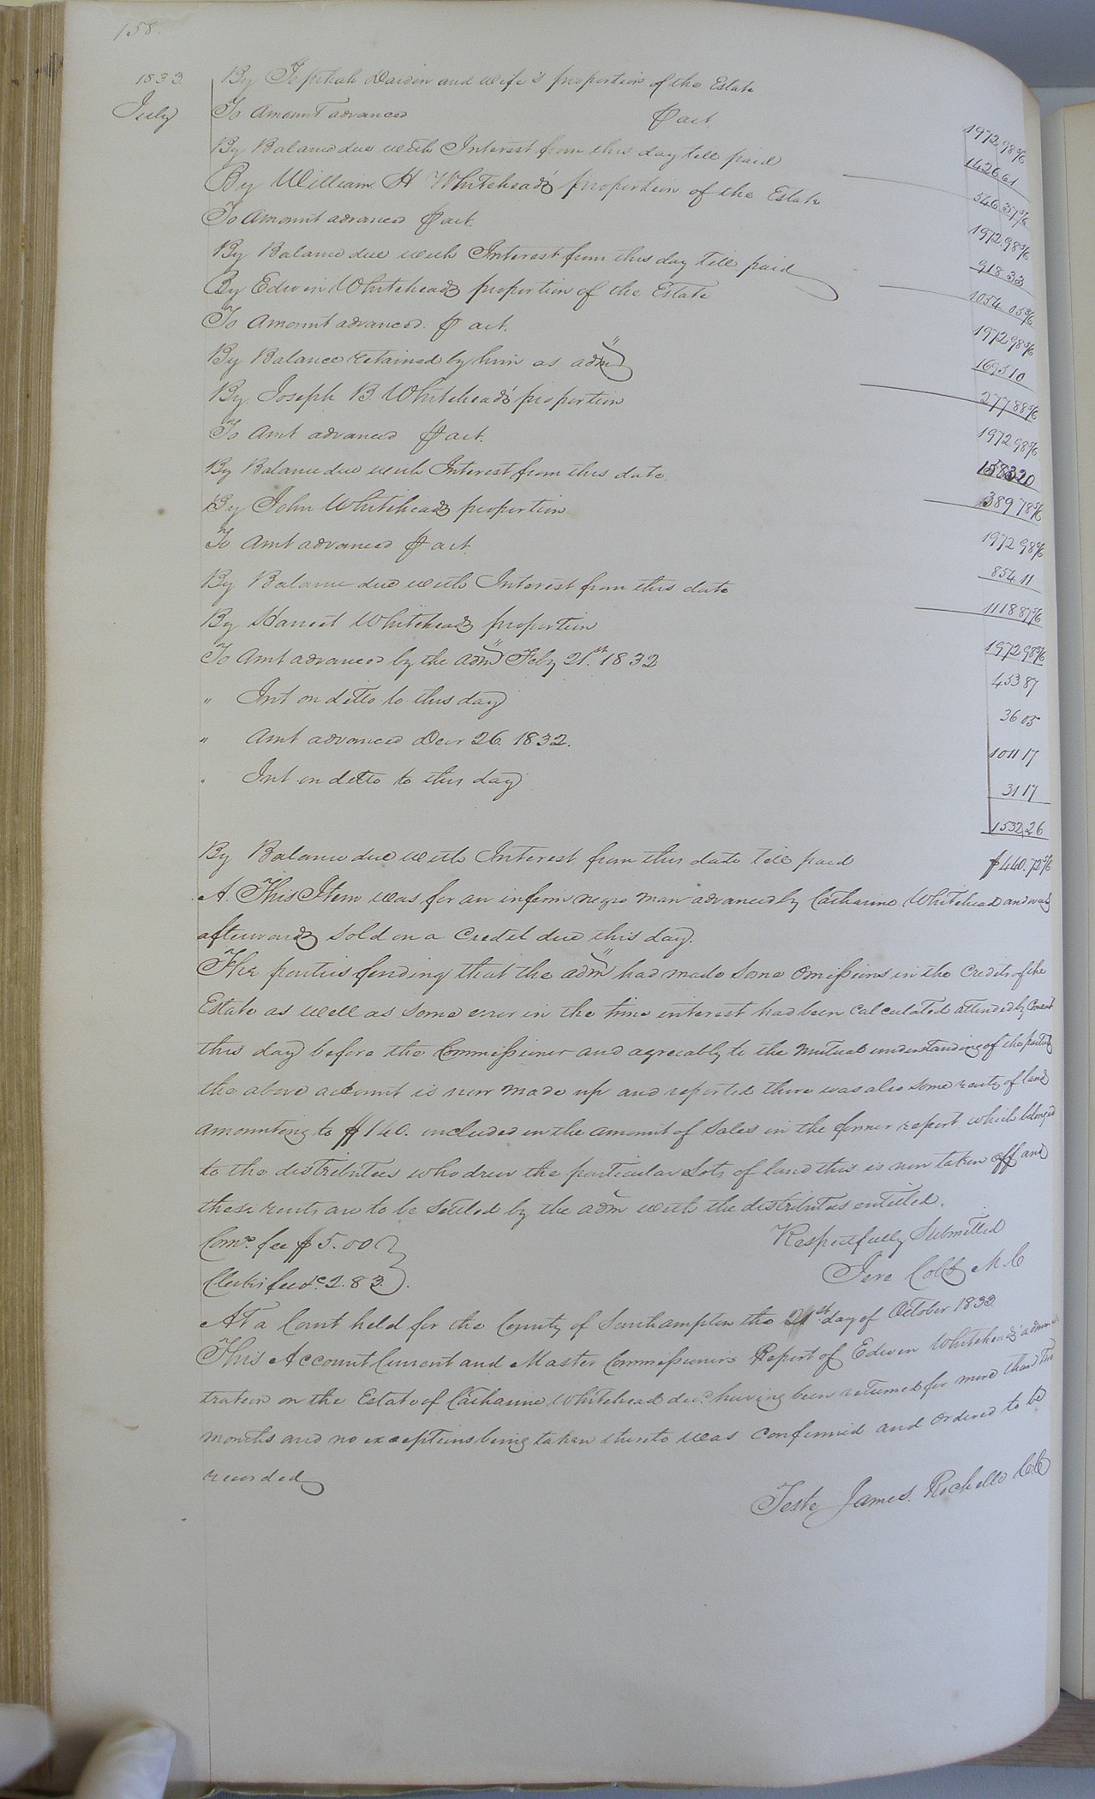 158
1833 By Jephtah Darden and wife's proportion of the Estate 1972 98 5/6
July To Amount advanced ⅌ act. 1426 61
By Balance due with Interest from this day till paid 546 37 5/6
By William H Whitehead's proportion of the Estate 1972 98 5/6
To Amount advanced ⅌ act. 918 33
By Balance due with Interest from this day till paid 1054 65 5/6
By Edwin Whiteheads proportion of the Estate 1972 98 5/6
To Amount advanced ⅌ act. 1695 10
By Balance retained by him as adm 277 88 5/6
By Joseph B. Whitehead's proportion 1972 98 5/6
To Amt advanced ⅌ act. 1583 20
By Balance due with Interest from this date 389 78 5/6
By John Whiteheads proportion 1972 98 5/6
To Amt advanced ⅌ act. 854 11
By Balance due with Interest from this date 1118 87 5/6
By Harriet Whiteheads proportion 1972 98 5/6
To Amt advanced by the adm Feby 21st 1832 453 87
" Int on ditto to this day 36 05
" Amt advanced Decr 26. 1832. 1011 17
" Int on ditto to this day 31 17
1532 26
By Balance due with Interest from this date till paid $440.72 5/6
A. This Item was for an infirm negro man advanced by Catharine Whitehead and was
afterwards sold on a Credit due this day.
The parties finding that the adm had made some omissions in the Credits of the
Estate as well as some error in the time interest had been calculated attended by Consent
this day before the Commissioner and agreeably to the mutual understanding of the parties
the above account is now made up and reported there was also some rents of land
amounting to $140. included in the amount of Sales in the former report which belonged
to the distributees who drew the particular Lots of land this is now taken off and
these rents are to be settled by the adm with the distributees entitled.
Comr. fee $5.00 Respectfully Submitted
Clerks fee &c 2.83. Jere Cobb M.C
At a Court held for the County of Southampton the 21st day of October 1833
This Account Current and Master Commissioner's Report of Edwin Whitehead's adminis
tration on the Estate of Catharine Whitehead decd. having been returned for more than two
months and no exceptions being taken thereto was confirmed and ordered to be
recorded
Teste James Rochelle CC